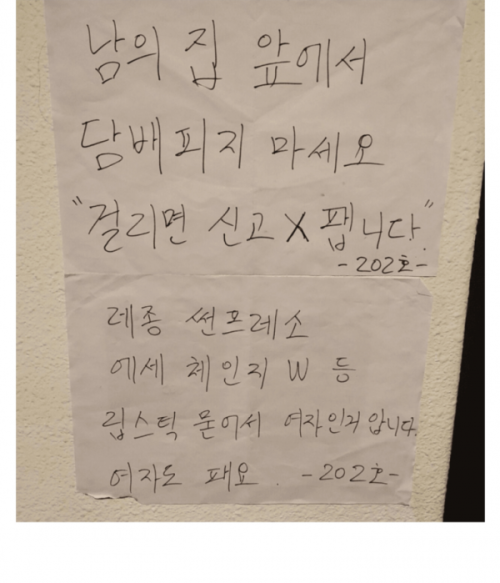 남의 집 앞에서
담배피지 마세요
"걸리면 신고 X 팹니다."
-202호-
레종 썬프레소
에세 체인지 W 등
립스틱 묻어서 여자인거 압니다.
여자도 패요. -202호-